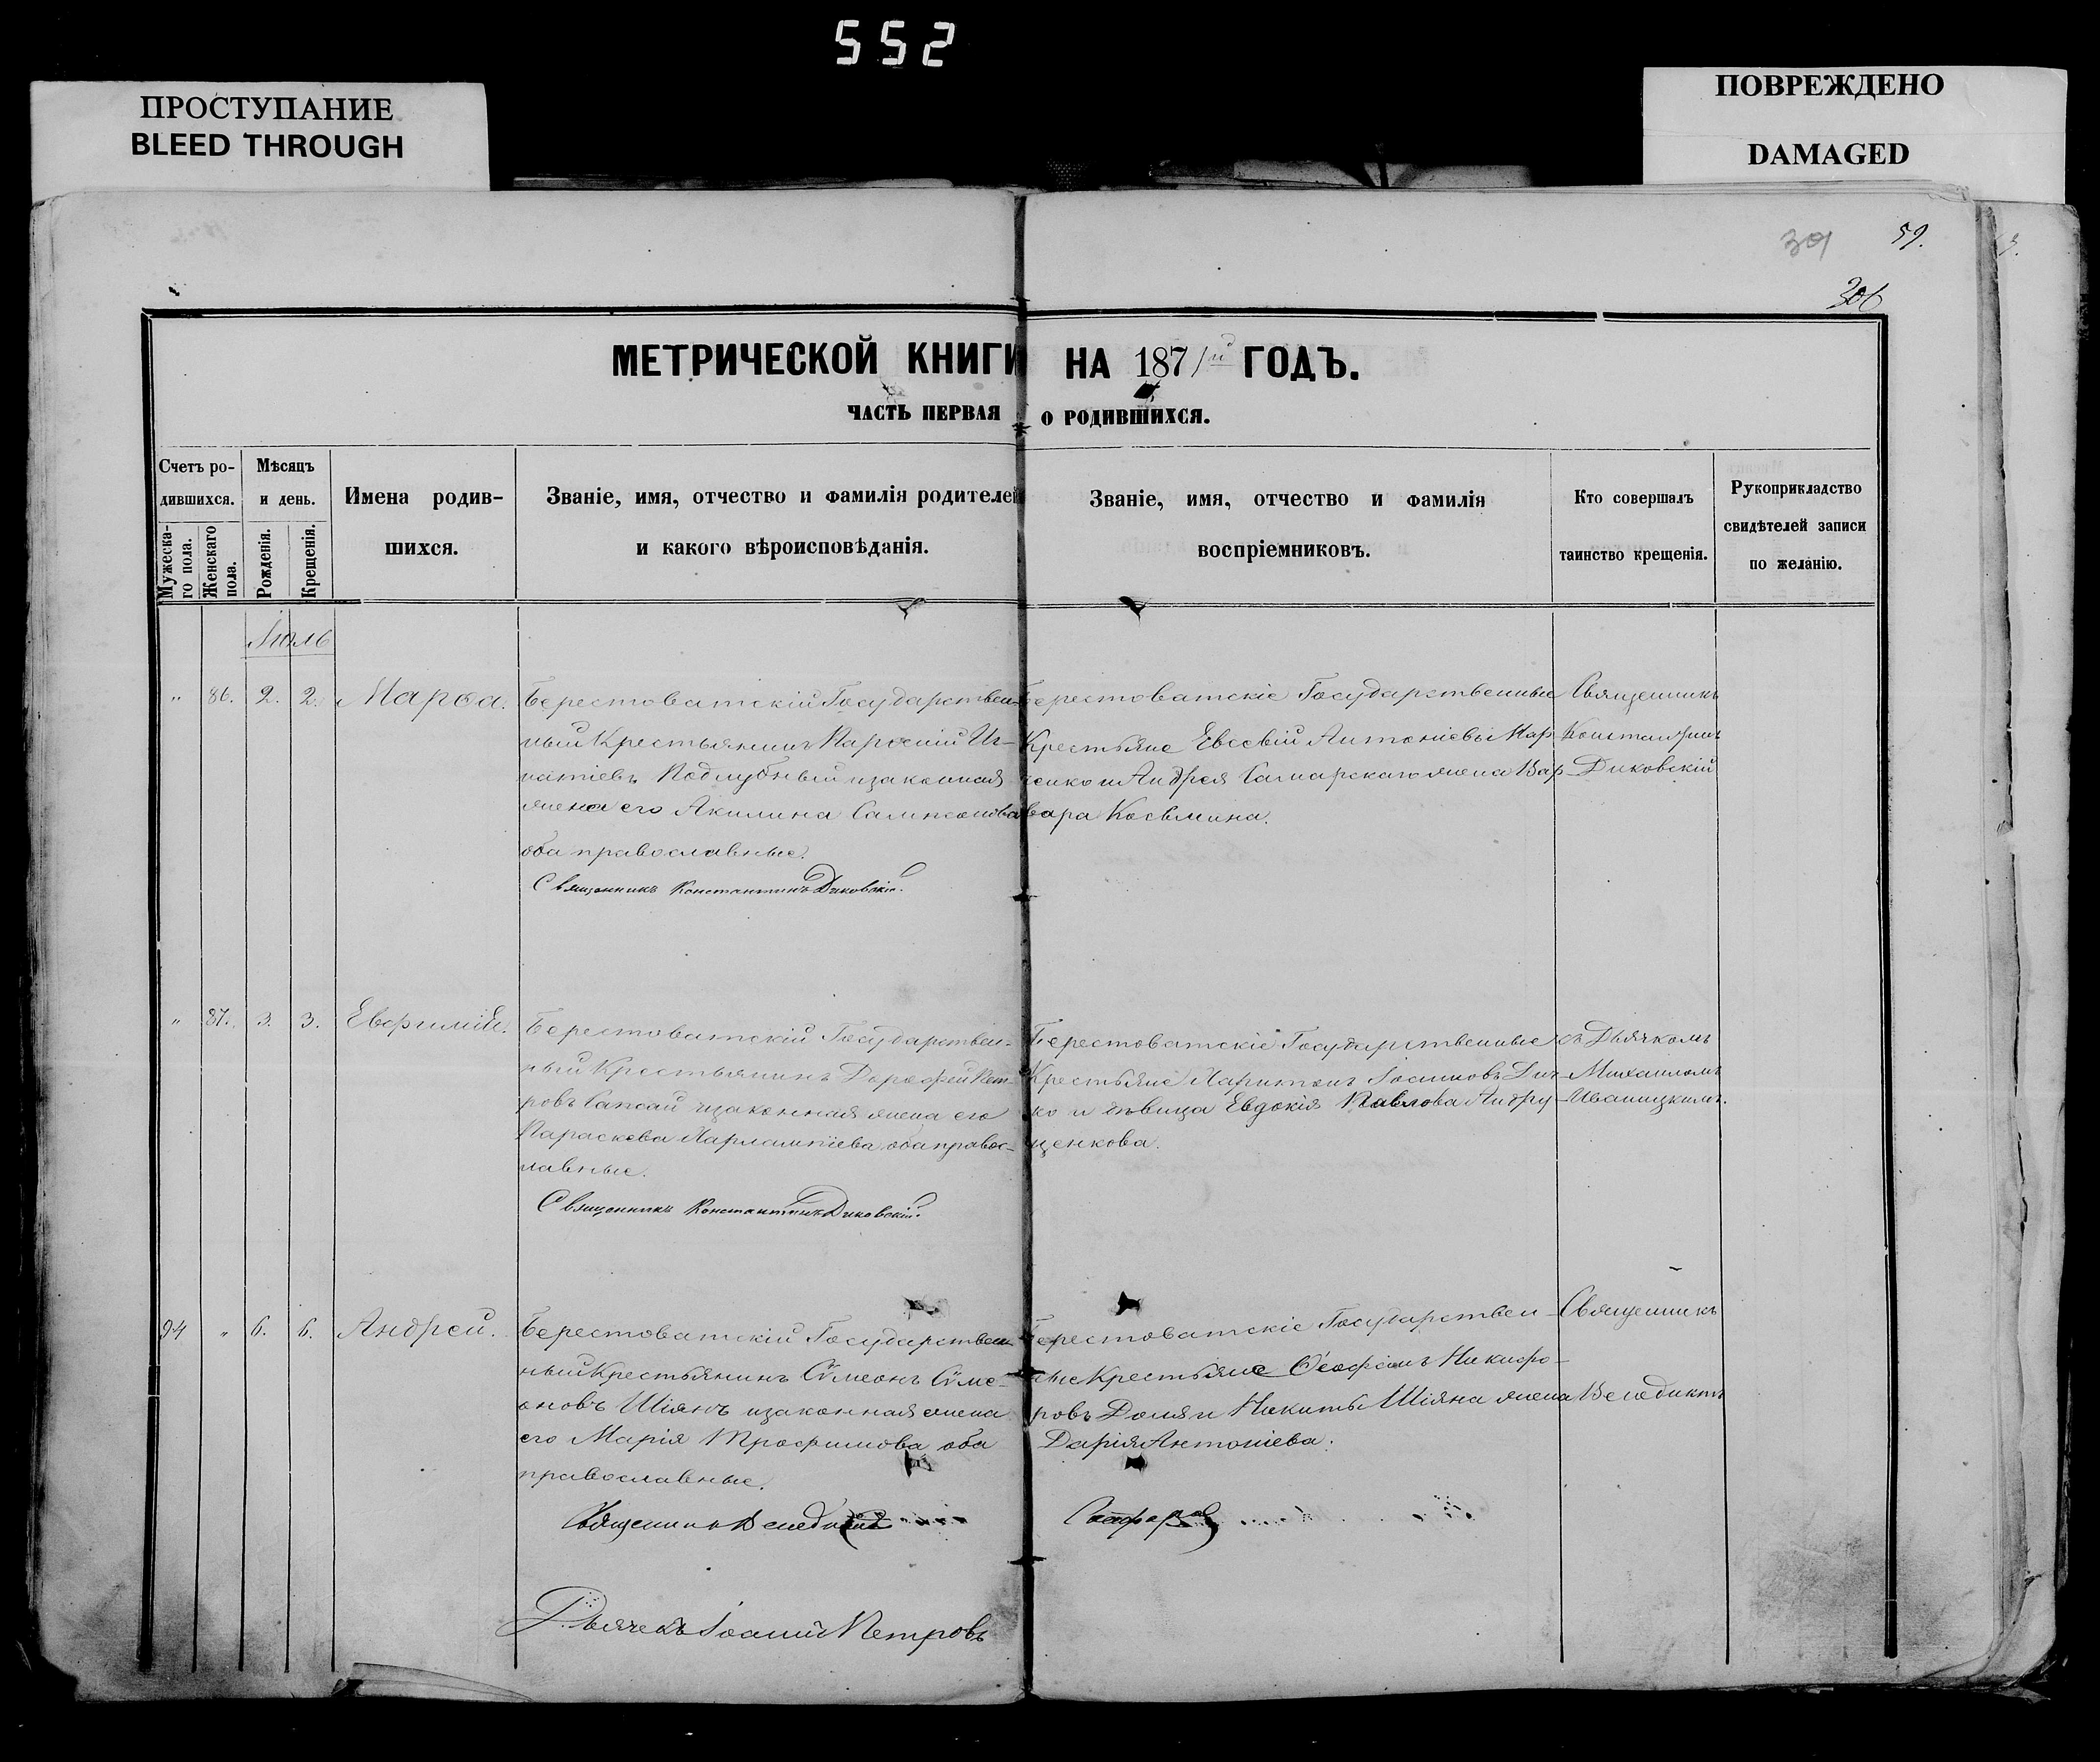 552
ПРОСТУПАНИЕ
BLEED THROUGH
ПОВРЕЖДЕНО
DAMAGED
59.
301
306
МЕТРИЧЕСКОЙ КНИГИ НА 1871й ГОДЪ.
ЧАСТЬ ПЕРВАЯ О РОДИВШИХСЯ.
Счетъ ро-
дившихся.
Мужеска-
го пола.
Женскаго
пола.
Мѣсяцъ
и день.
Рожденія.
Крещенія.
Имена родив-
шихся.
Званіе, имя, отчество и фамилія родителей
и какого вѣроисповѣданія.
Званіе, имя, отчество и фамилія
воспріемниковъ.
Кто совершалъ
таинство крещенія.
Рукоприкладство
свидѣтелей записи
по желанію.
Іюль
" 86. 2. 2. Марѳа.
Берестоватскій Государствен-
ный Крестьянинъ Парѳеній Иг-
натіевъ Поддубный и законная
жена его Акилина Сампсонова
оба православные.
Священникъ Константинъ Диковскій.
Берестоватскіе Государственные
Крестьяне Евсевій Антоніевъ Мар-
ченко и Андрея Самарскаго жена Вар-
вара Косьмина.
Священникъ
Константинъ
Диковскій
" 87. 3. 3. Евфимія.
Берестоватскій Государствен-
ный Крестьянинъ Дорофей Пет-
ровъ Сапсай и законная жена его
Параскева Харлампіева, оба правос-
лавные.
Священникъ Константинъ Диковскій.
Берестоватскіе Государственные
Крестьяне Харитонъ Іоанновъ
ко и дѣвица Евдокія Павлова Андру-
щенкова.
съ Дьячкомъ
Михаиломъ
Иваницкимъ.
94 " 6. 6. Андрей.
Берестоватскій Государствен-
ный Крестьянинъ Сѵмеонъ Сѵме-
оновъ Шіянъ и законная жена
его Марія Трофимова, оба
православные.
Священникъ Венедиктъ
Берестоватскіе Государствен-
ные Крестьяне Ѳеофанъ Никифо-
ровъ Доля и Никиты Шіяна жена
Дарія Антоніева.
Священникъ
Венедиктъ
Дьячекъ Іоаннъ Петровъ